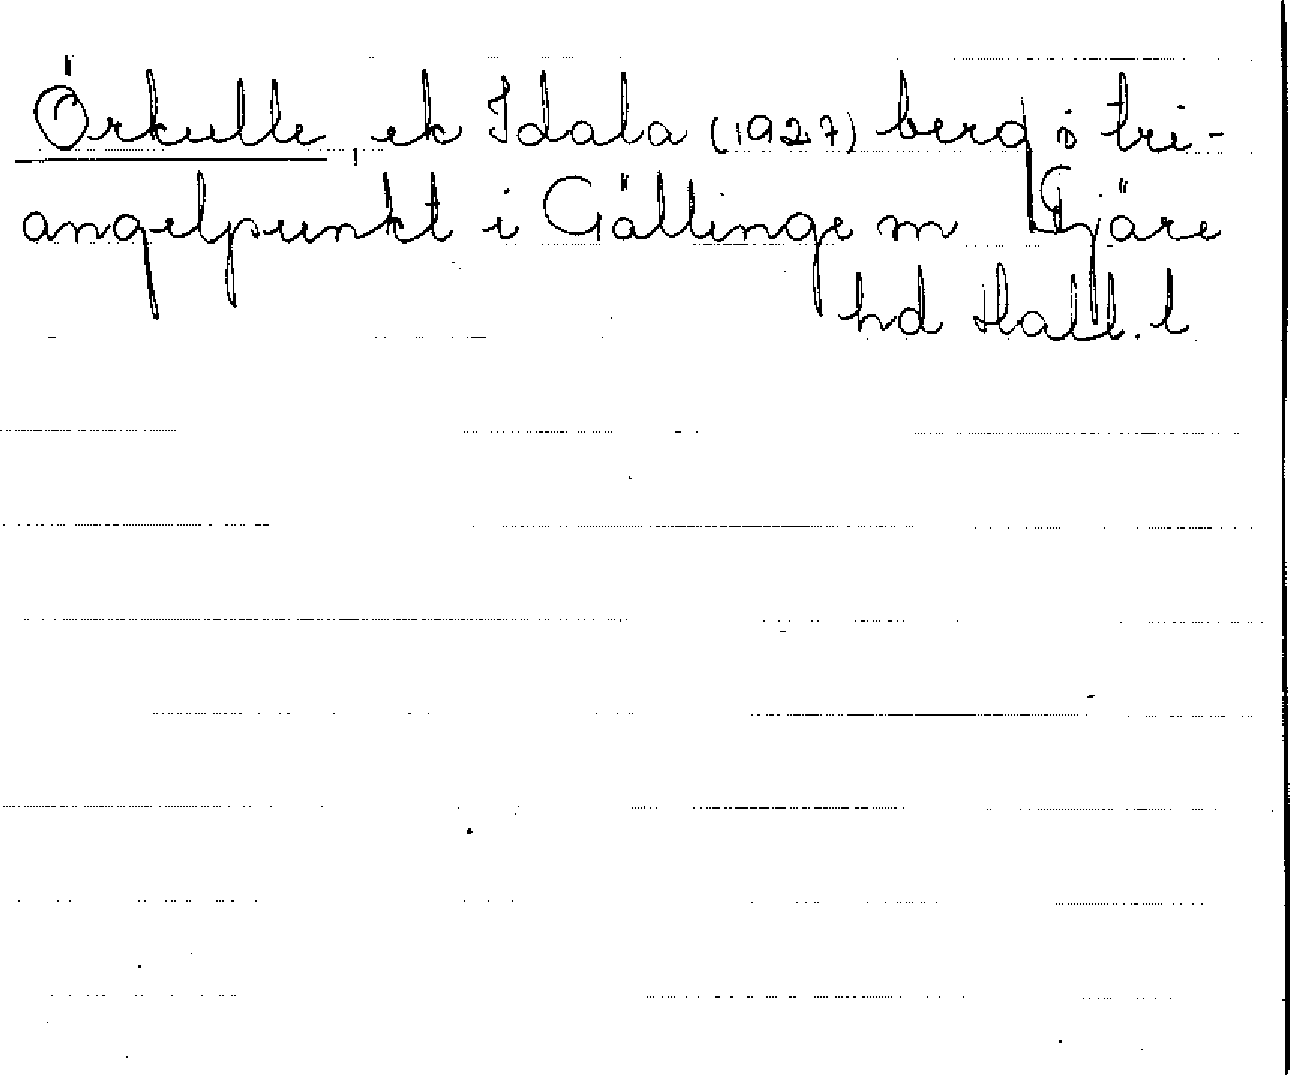 Örkulle, ek Idala (1927) berg o tri-
angelpunkt i Gällinge sn Fjäre
hd Hall. l